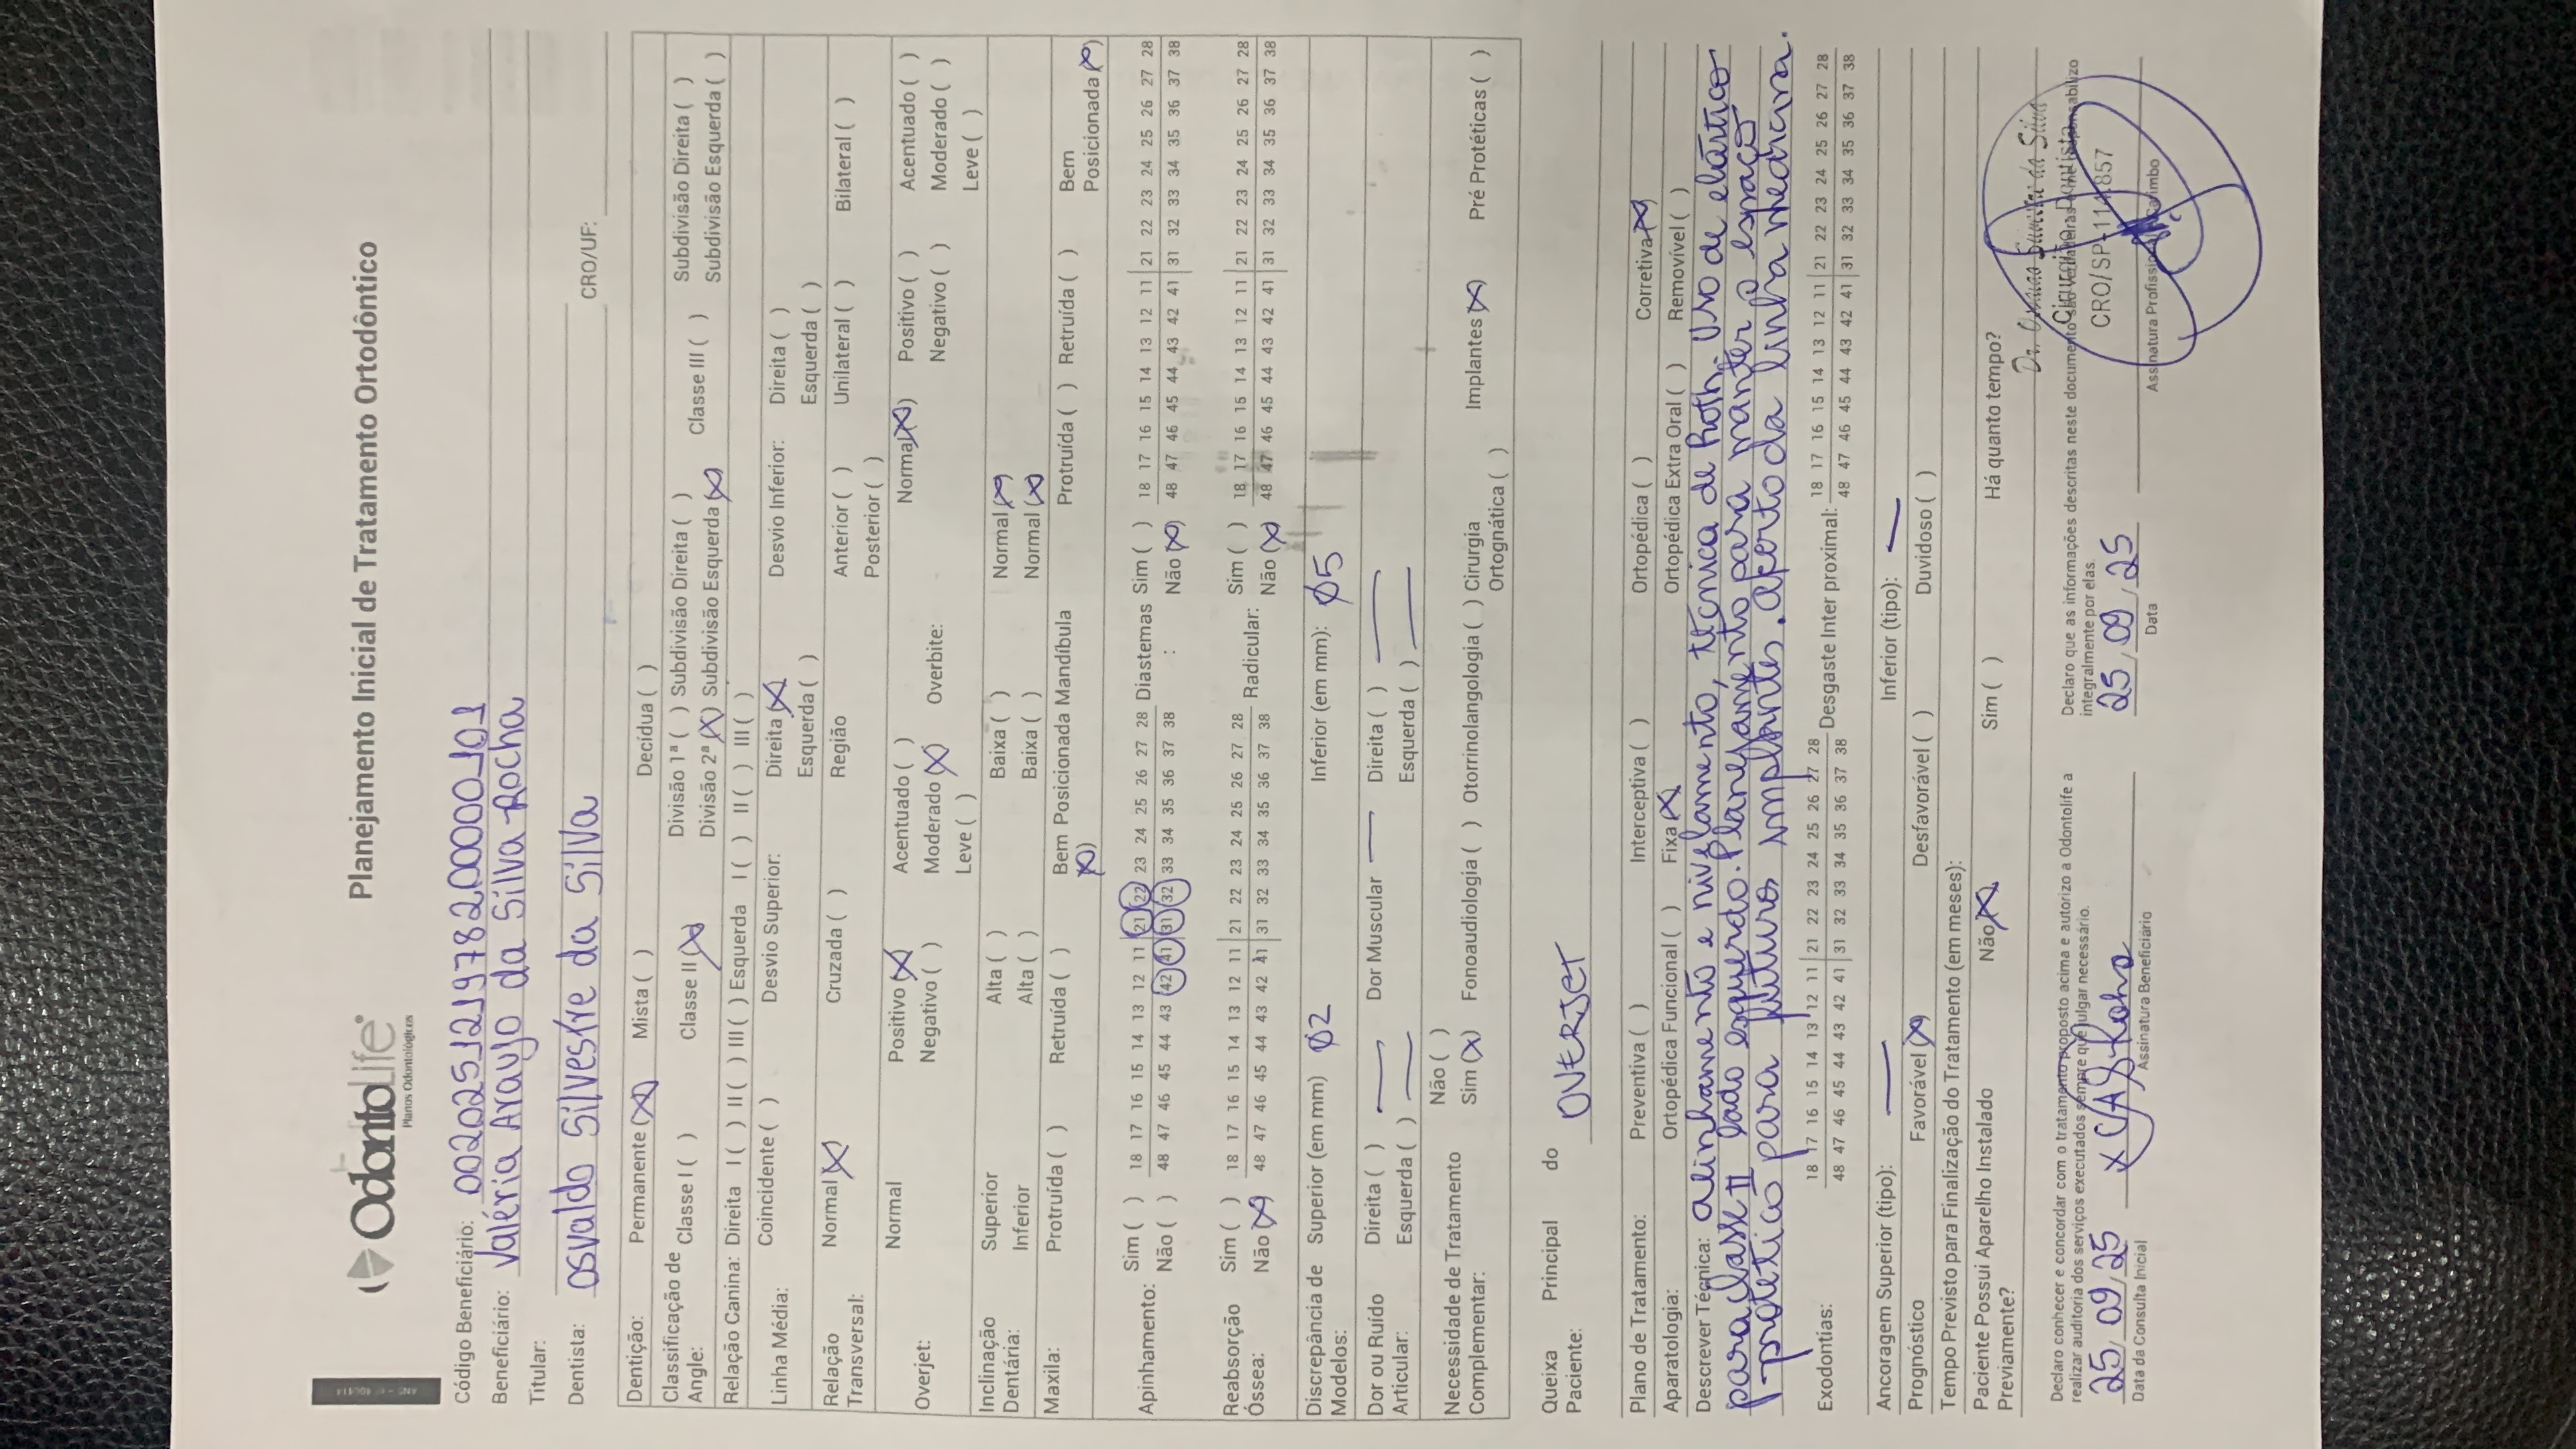 OdontoLife®
Planos Odontológicos
Planejamento Inicial de Tratamento Ortodôntico
Código Beneficiário: 00202512197820000101
Beneficiário: Valéria Araujo da Silva Rocha
Titular:
Dentista: Osvaldo Silvestre da Silva CRO/UF:
Dentição: Permanente (X) Mista ( ) Decídua ( )
Classificação de Angle: Classe I ( ) Classe II (X) Divisão 1ª ( ) Subdivisão Direita ( ) Classe III ( ) Subdivisão Direita ( )
Divisão 2ª (X) Subdivisão Esquerda (X) Subdivisão Esquerda ( )
Relação Canina: Direita I ( ) II ( ) III ( ) Esquerda I ( ) II ( ) III ( )
Linha Média: Coincidente ( ) Desvio Superior: Direita (X) Desvio Inferior: Direita ( )
Esquerda ( ) Esquerda ( )
Relação Transversal: Normal (X) Cruzada ( ) Região Anterior ( ) Unilateral ( ) Bilateral ( )
Posterior ( )
Overjet: Normal Positivo (X) Acentuado ( ) Overbite: Normal (X) Positivo ( ) Acentuado ( )
Negativo ( ) Moderado (X) Negativo ( ) Moderado ( )
Leve ( ) Leve ( )
Inclinação Dentária: Superior Alta ( ) Baixa ( ) Normal (X)
Inferior Alta ( ) Baixa ( ) Normal (X)
Maxila: Protruída ( ) Retruída ( ) Bem Posicionada (X) Mandíbula Protruída ( ) Retruída ( ) Bem Posicionada (X)
Apinhamento: Sim ( ) 18 17 16 15 14 13 12 11 21 22 23 24 25 26 27 28 Diastemas: Sim ( ) 18 17 16 15 14 13 12 11 21 22 23 24 25 26 27 28
Não ( ) 48 47 46 45 44 43 42 41 31 32 33 34 35 36 37 38 Não (X) 48 47 46 45 44 43 42 41 31 32 33 34 35 36 37 38
Reabsorção Óssea: Sim ( ) 18 17 16 15 14 13 12 11 21 22 23 24 25 26 27 28 Radicular: Sim ( ) 18 17 16 15 14 13 12 11 21 22 23 24 25 26 27 28
Não (X) 48 47 46 45 44 43 42 41 31 32 33 34 35 36 37 38 Não (X) 48 47 46 45 44 43 42 41 31 32 33 34 35 36 37 38
Discrepância de Modelos: Superior (em mm) 02 Inferior (em mm): 05
Dor ou Ruído Articular: Direita ( ) — Dor Muscular — Direita ( ) —
Esquerda ( ) — Esquerda ( ) —
Necessidade de Tratamento Complementar: Não ( )
Sim (X) Fonoaudiologia ( ) Otorrinolangologia ( ) Cirurgia Ortognática ( ) Implantes (X) Pré Protéticas ( )
Queixa Principal do Paciente: OVERJET
Plano de Tratamento: Preventiva ( ) Interceptiva ( ) Ortopédica ( ) Corretiva (X)
Aparatologia: Ortopédica Funcional ( ) Fixa (X) Ortopédica Extra Oral ( ) Removível ( )
Descrever Técnica: alinhamento e nivelamento, técnica de Roth. Uso de elástico
para classe II lado esquerdo. Planejamento para manter espaço
protético para futuros implantes. aperto da linha mediana.
Exodontias: 18 17 16 15 14 13 12 11 21 22 23 24 25 26 27 28 Desgaste Inter proximal: 18 17 16 15 14 13 12 11 21 22 23 24 25 26 27 28
48 47 46 45 44 43 42 41 31 32 33 34 35 36 37 38 48 47 46 45 44 43 42 41 31 32 33 34 35 36 37 38
Ancoragem Superior (tipo): — Inferior (tipo): —
Prognóstico Favorável (X) Desfavorável ( ) Duvidoso ( )
Tempo Previsto para Finalização do Tratamento (em meses):
Paciente Possui Aparelho Instalado Previamente? Não (X) Sim ( ) Há quanto tempo?
Declaro conhecer e concordar com o tratamento proposto acima e autorizo a Odontolife a
realizar auditoria dos serviços executados sempre que julgar necessário.
25/09/25
Data da Consulta Inicial
Assinatura Beneficiário
Declaro que as informações descritas neste documento são verdadeiras e me responsabilizo
integralmente por elas.
25/09/25
Data
da Silva
Cirurgião Dentista
CRO/SP-114857
Assinatura Profissional/Carimbo